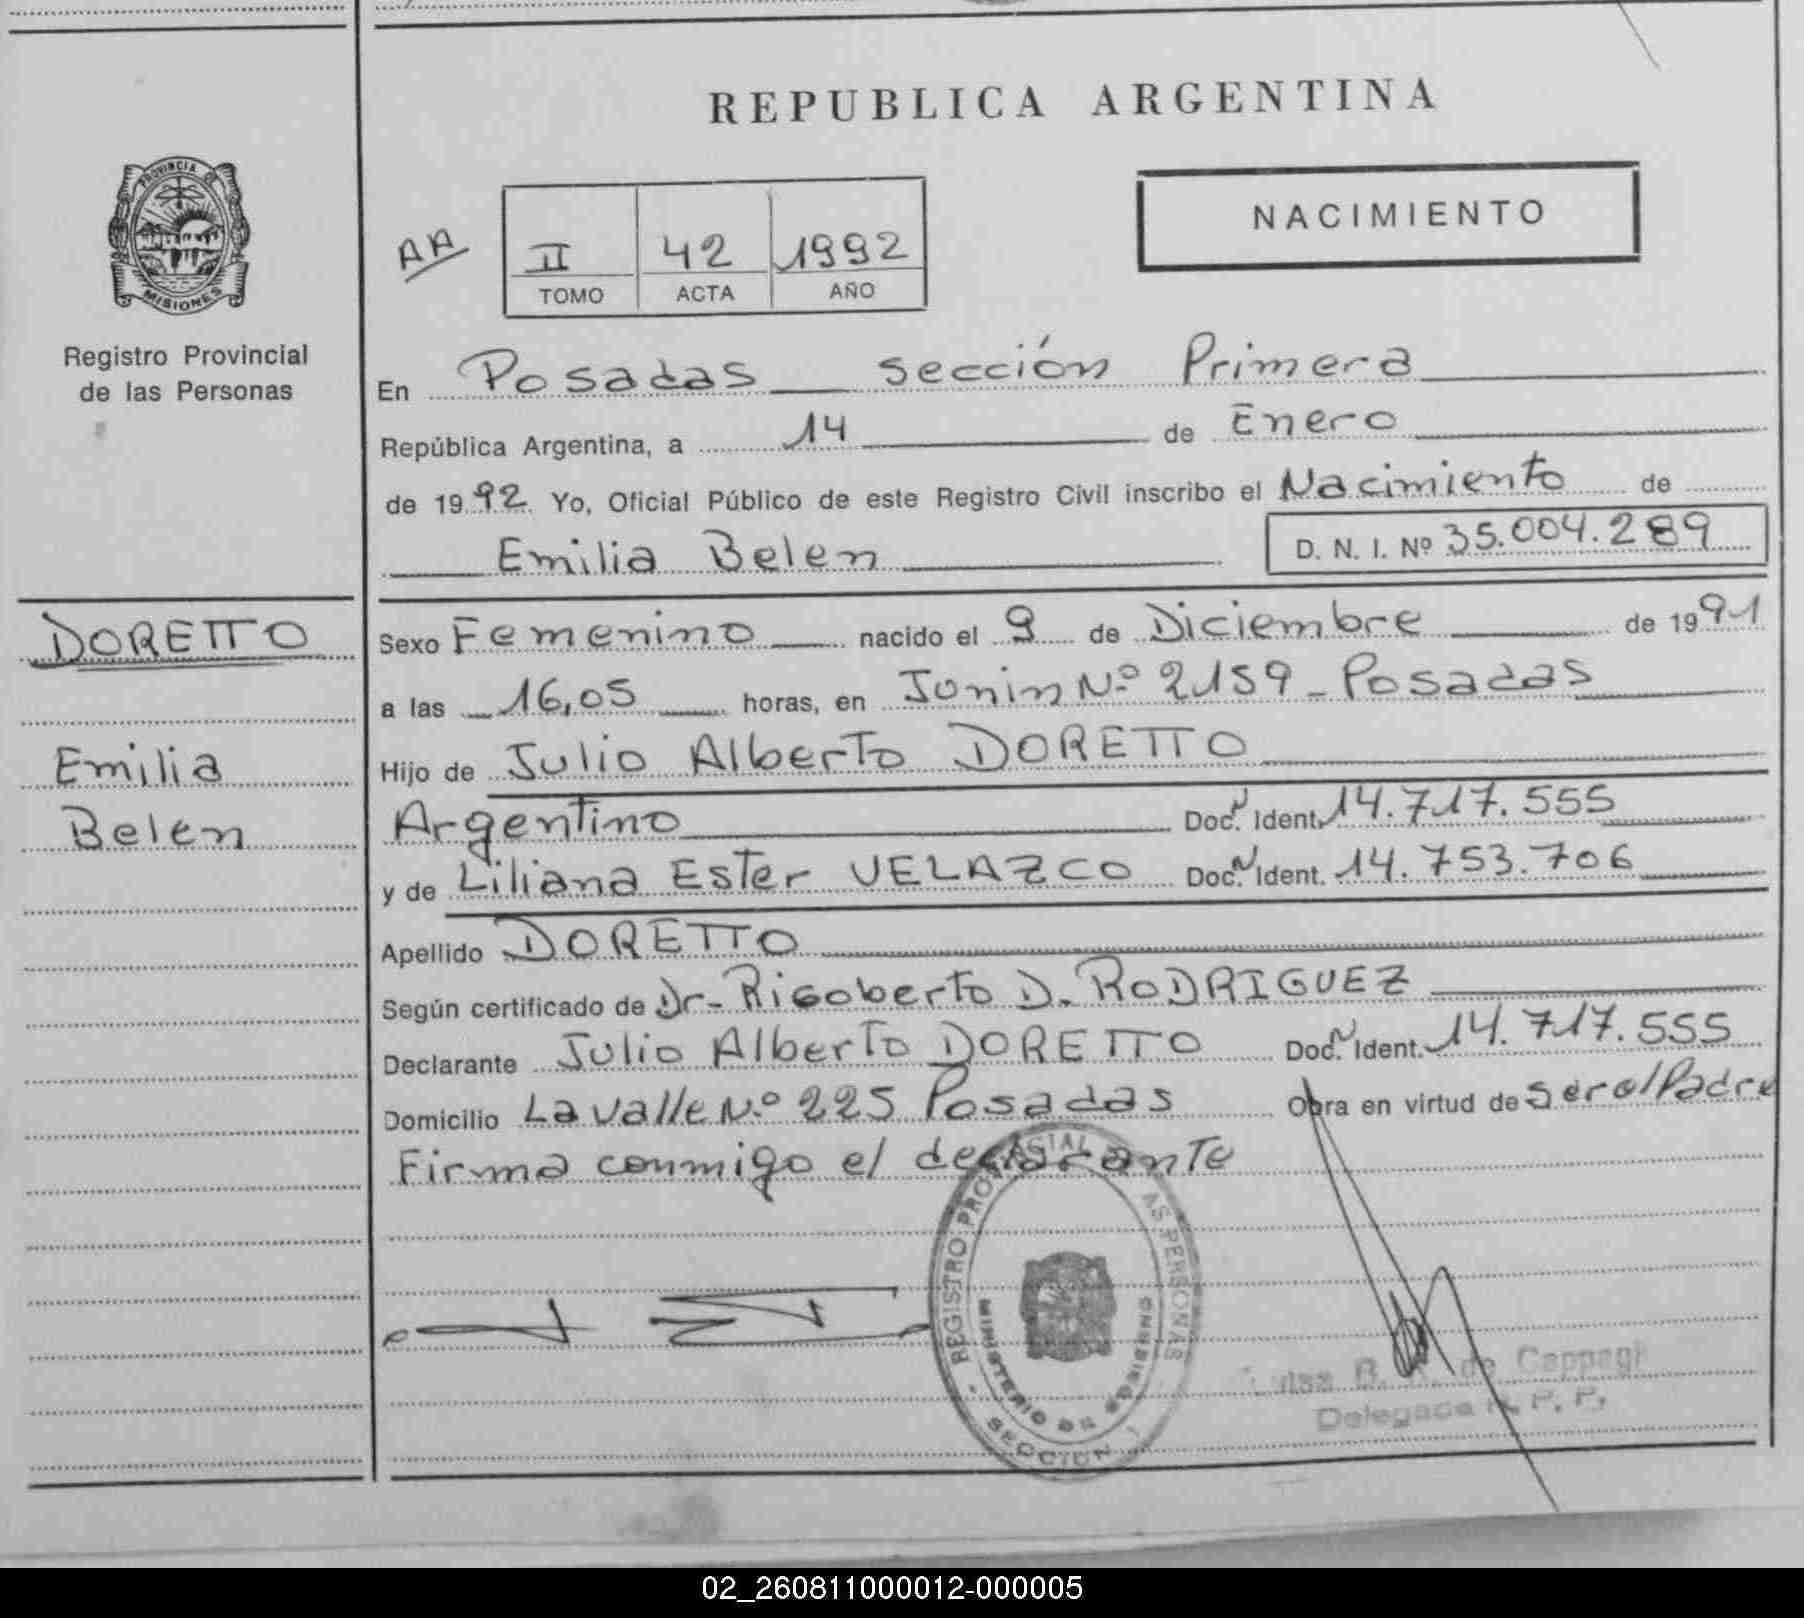 REPUBLICA ARGENTINA
PROVINCIA DE
MISIONES
Registro Provincial
de las Personas
NACIMIENTO
AA
II 42 1992
TOMO ACTA AÑO
En Posadas sección Primera
República Argentina, a 14 de Enero
de 1992 Yo, Oficial Público de este Registro Civil inscribo el Nacimiento de
Emilia Belen D. N. I. Nº 35.004.289
DORETTO
Emilia
Belen
Sexo Femenino nacido el 9 de Diciembre de 1991
a las 16,05 horas, en Junin Nº 2159 - Posadas
Hijo de Julio Alberto DORETTO
Argentino Doc. N Ident. 14.717.555
y de Liliana Ester VELAZCO Doc. N Ident. 14.753.706
Apellido DORETTO
Según certificado de Dr. Rigoberto D. RODRIGUEZ
Declarante Julio Alberto DORETTO Doc. N Ident. 14.717.555
Domicilio Lavalle Nº 225 Posadas Obra en virtud de ser el Padre
Firma conmigo el declarante
REGISTRO PROVINCIAL AS PERSONAS
MINISTERIO DE GOBIERNO
SECCION 1
de Cappagli
Delegada R. P. P.
02_260811000012-000005